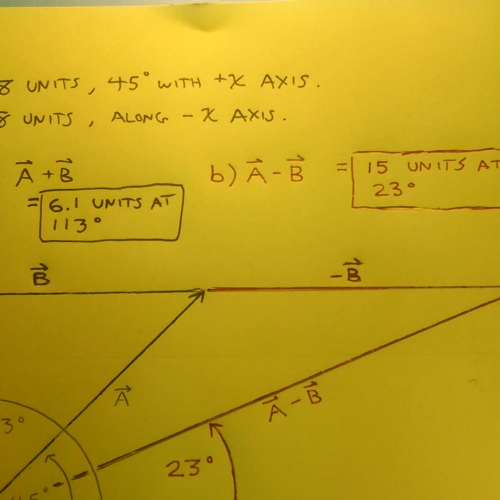 8 UNITS, 45° WITH +X AXIS.
8 UNITS, ALONG -X AXIS.
A⃗ + B⃗
= 6.1 UNITS AT
113°
b) A⃗ - B⃗ = 15 UNITS AT
23°
B⃗
-B⃗
A⃗
A⃗ - B⃗
3°
23°
45°